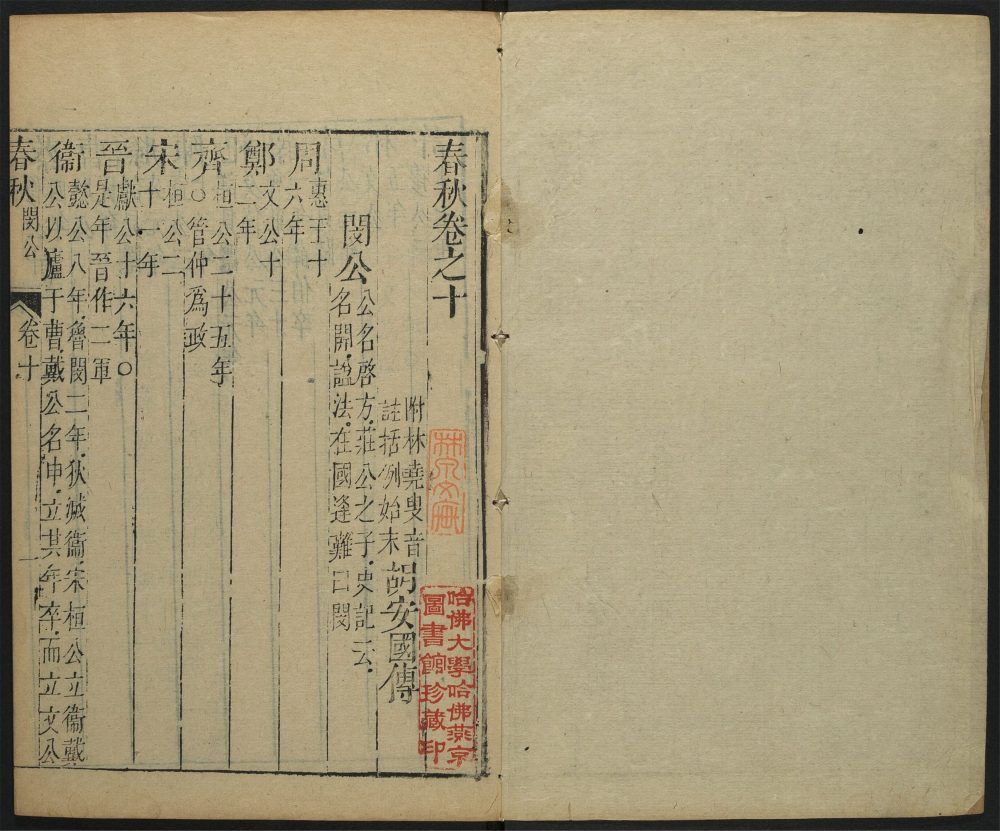 春秋卷之十
附林堯叟音
註括例始末
胡安國傳
閔公
公名啓方．莊公之子．史記云．
名開．諡法．在國逢難曰閔
周
惠王十
六年
鄭
文公十
二年
齊
桓公二十五年
○管仲爲政
宋
桓公二
十一年
晉
獻公十六年○
是年晉作二軍
衞
懿公八年．魯閔二年．狄滅衞．宋桓公立衞戴
公以廬于曹．戴公名申．立其年卒．而立文公
春秋
閔公
卷十
一
哈佛大學哈佛燕京
圖書館珍藏印